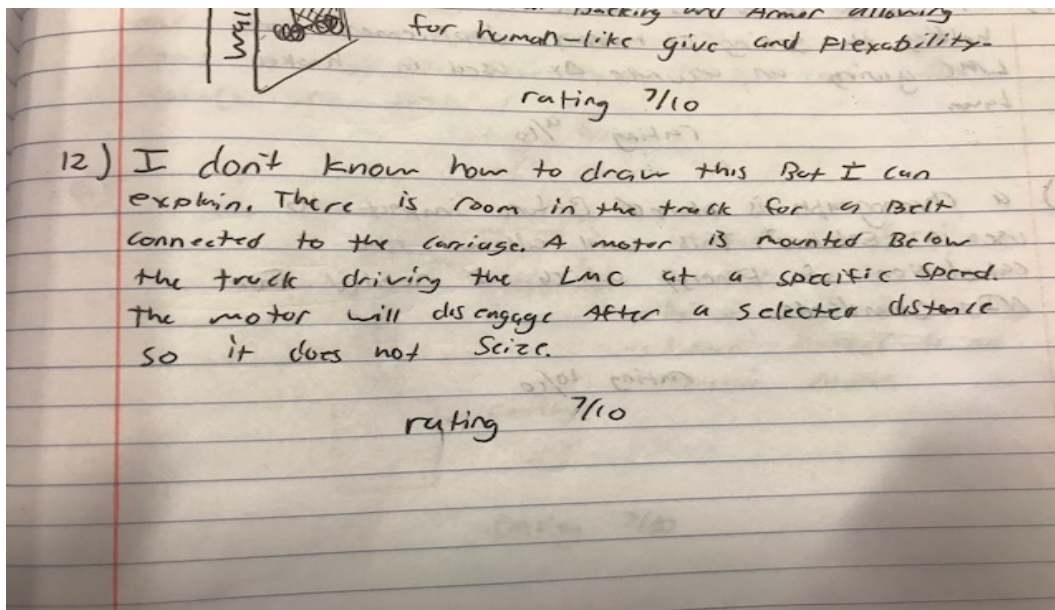 Wall
Backing and Armor allowing
for human-like give and flexability.
rating 7/10
12) I don't know how to draw this But I can
explain. There is room in the track for a Belt
connected to the carriage. A motor is mounted Below
the track driving the LMC at a specific speed.
The motor will disengage After a selected distance
so it does not Seize.
rating 7/10